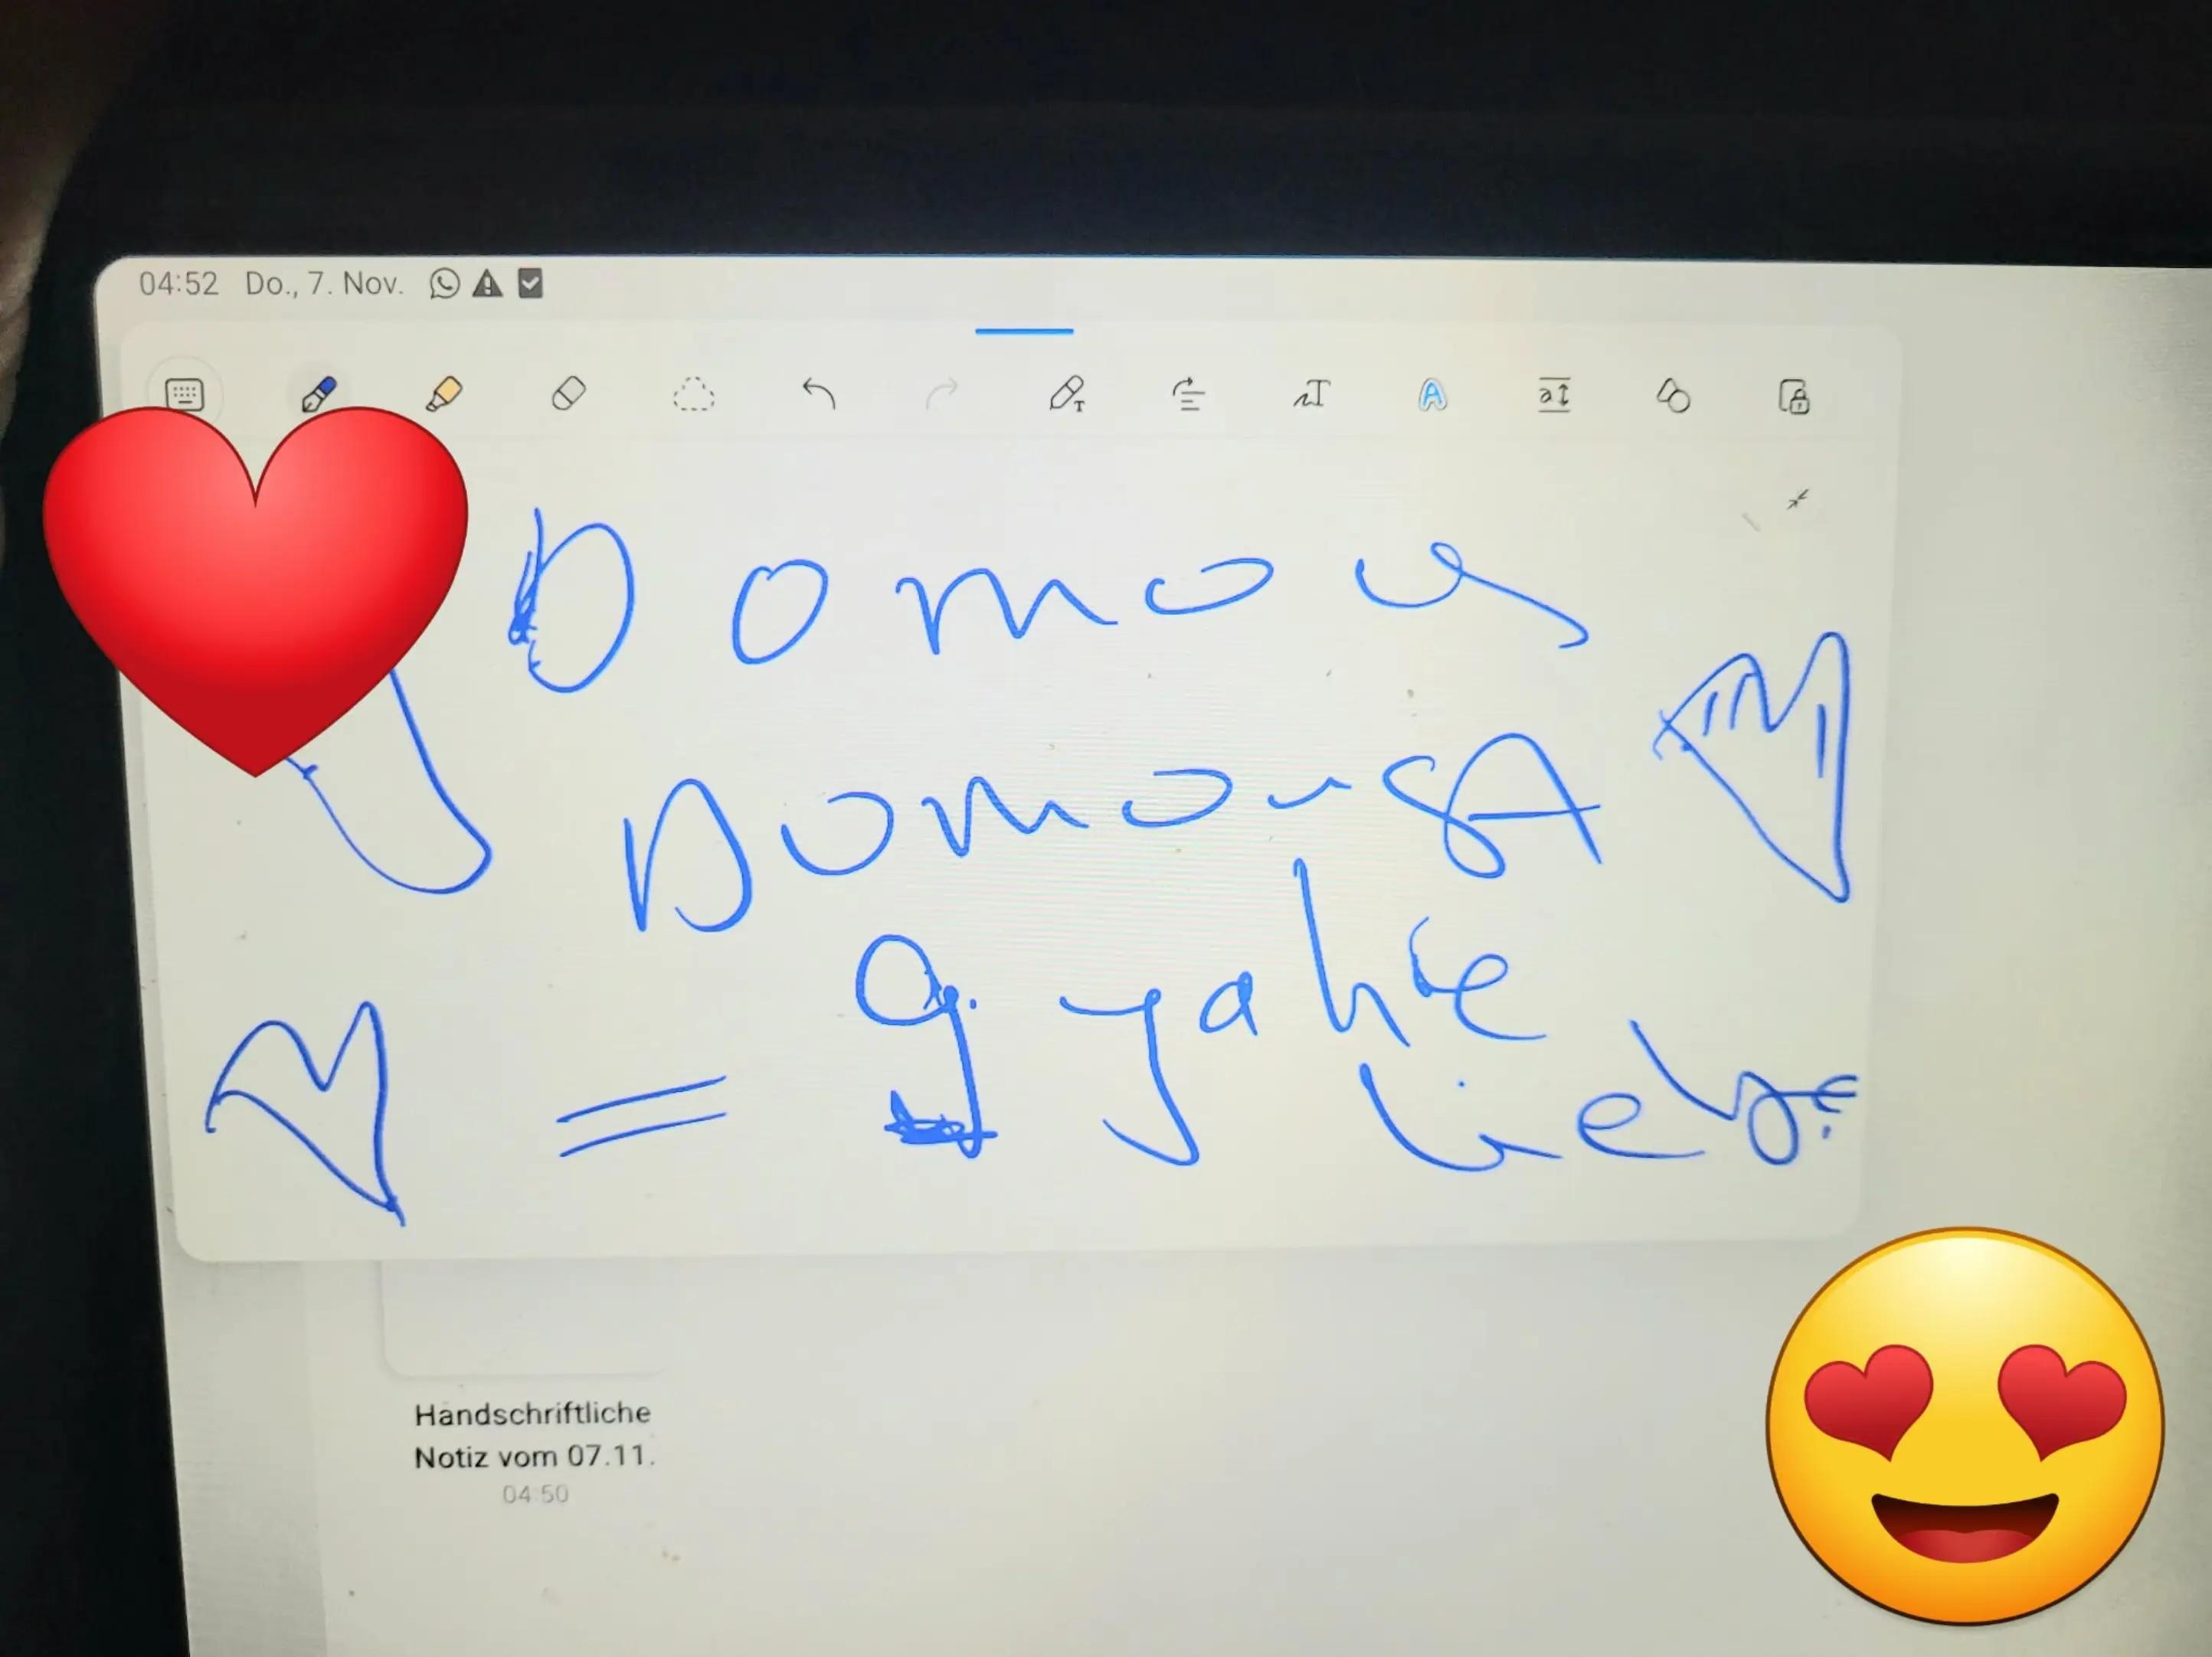 04:52 Do., 7. Nov.
Domou
DomousA
= 9 yahre
liebe
Handschriftliche
Notiz vom 07.11.
04:50